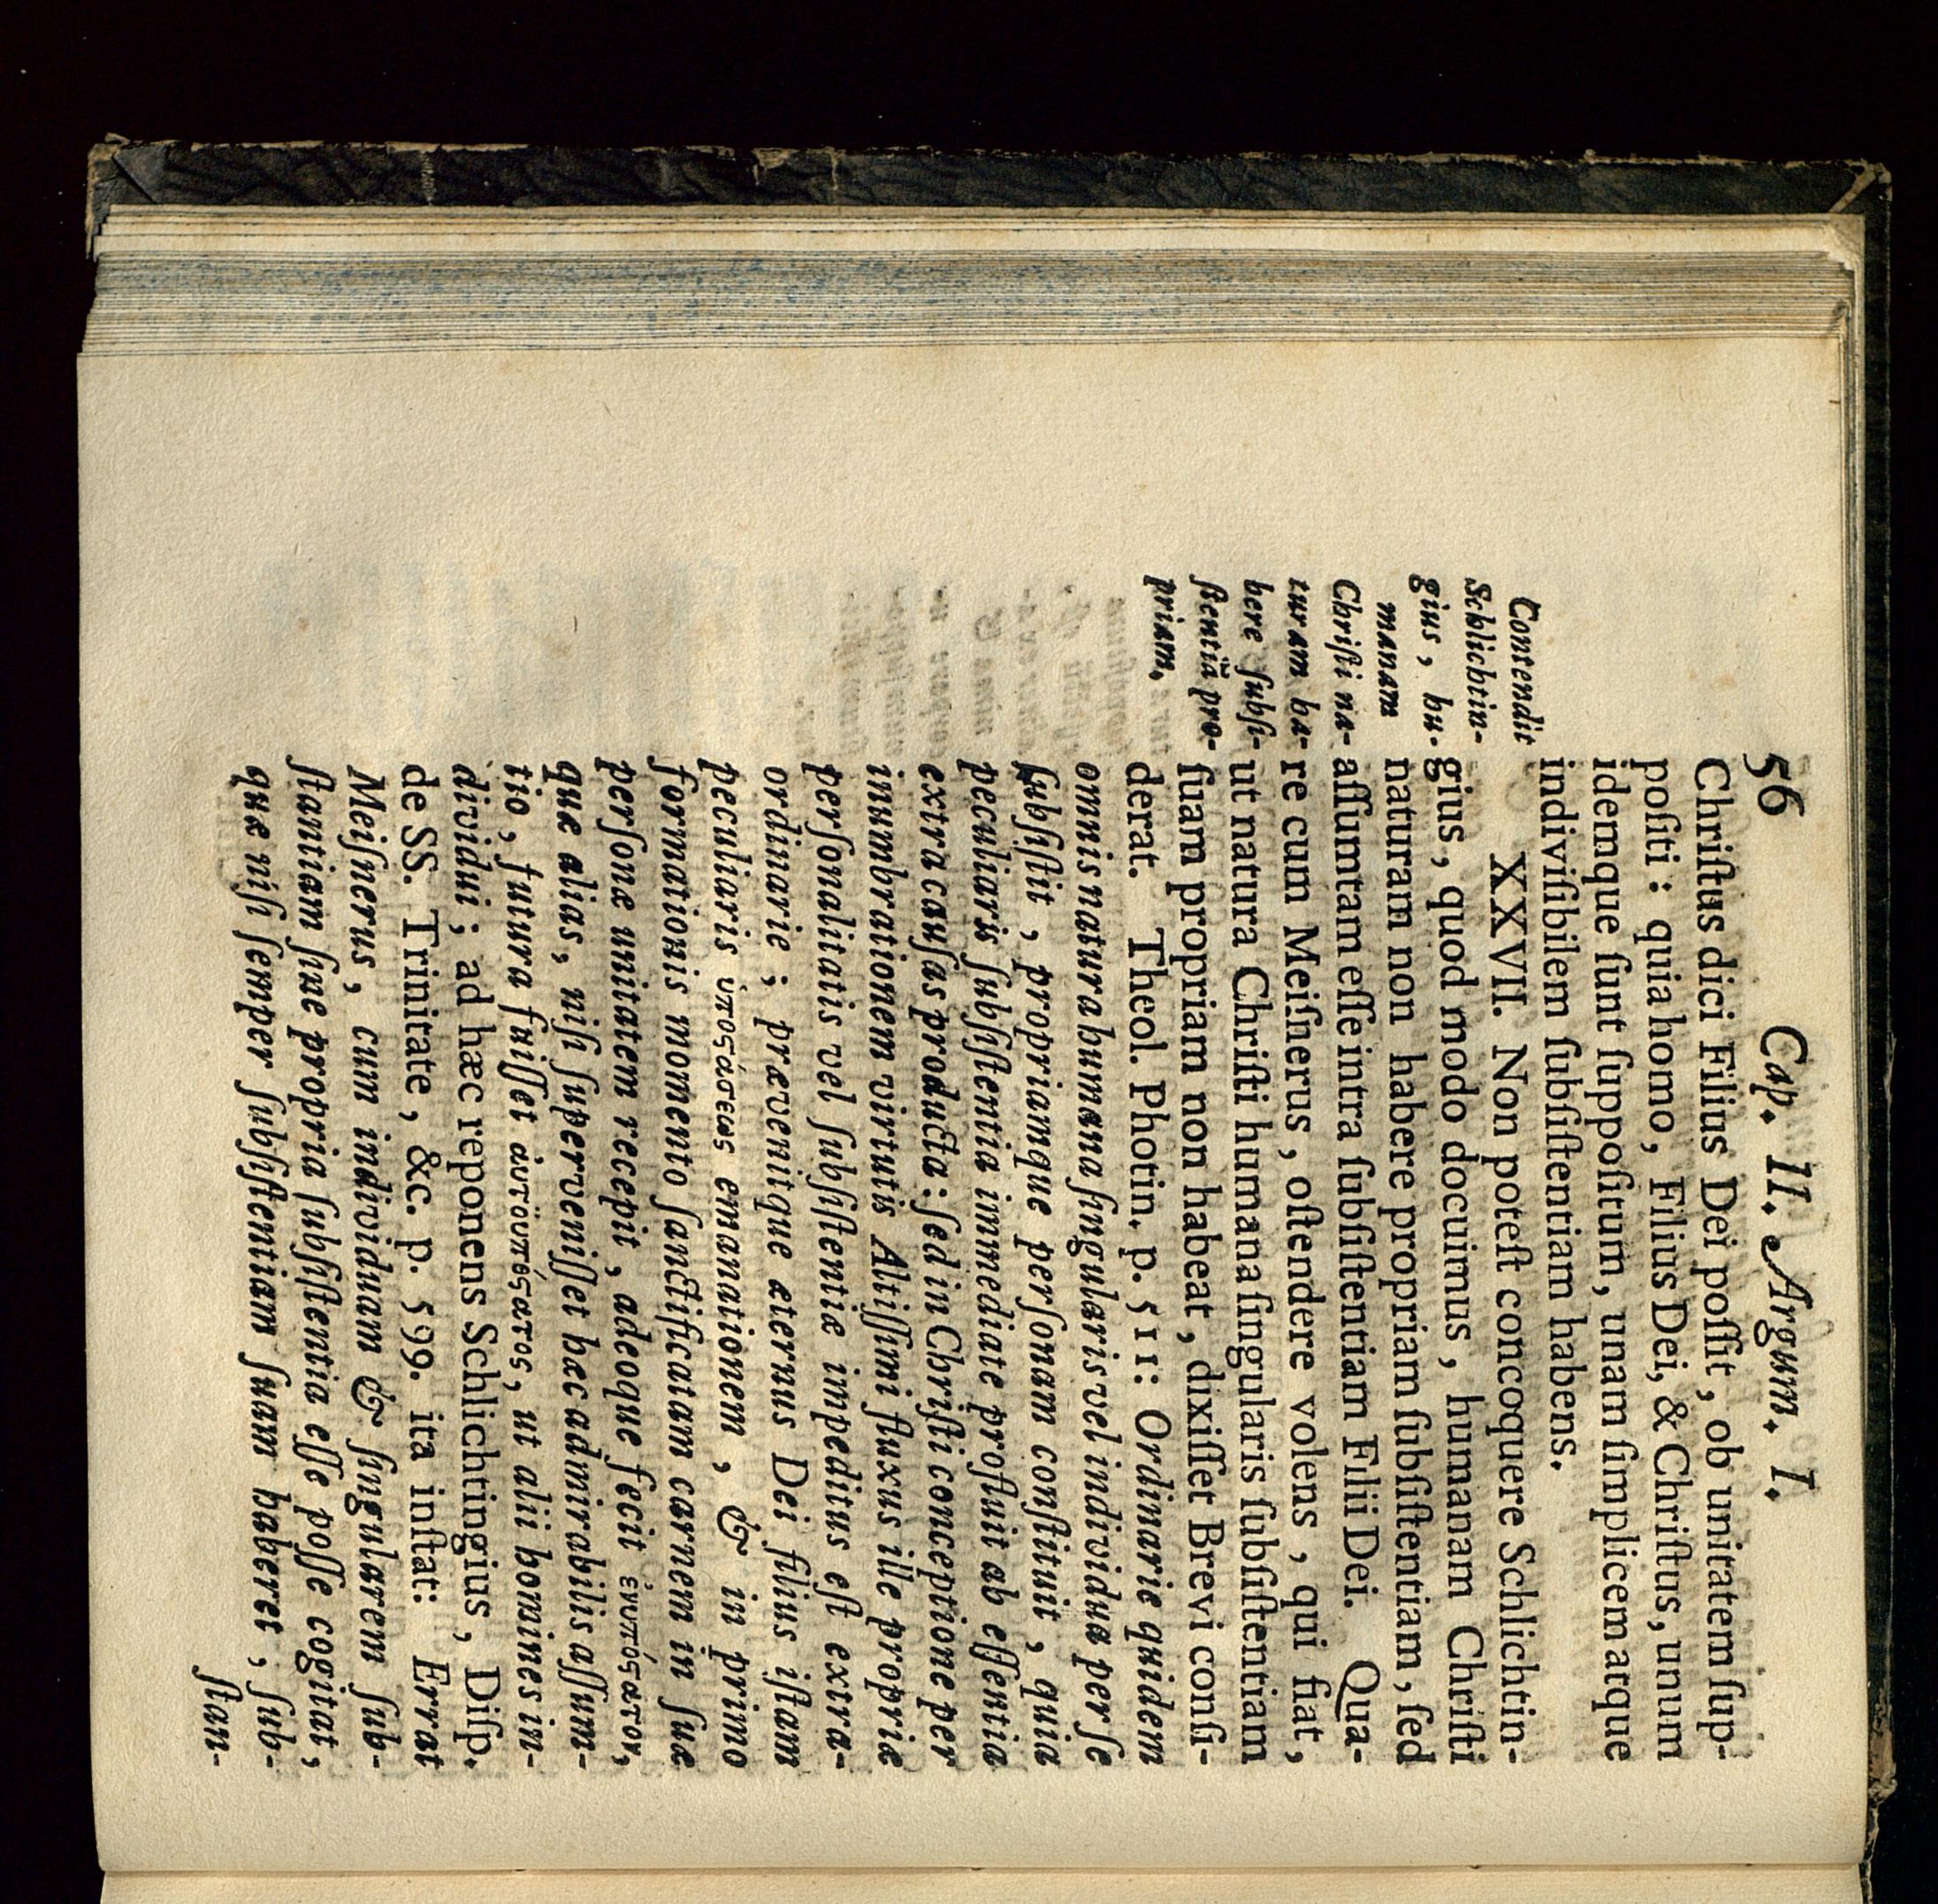 56 Cap. II. Argum. I.
Chriſtus dici Filius Dei poſſit, ob unitatem ſup-
poſiti: quia homo, Filius Dei, & Chriſtus, unum
idemque ſunt ſuppoſitum, unam ſimplicem atque
indiviſibilem ſubſiſtentiam habens.
Contendit
Schlichtin-
gius, hu-
manam
Chriſti na-
turam ha-
bere ſubſi-
ſtentiã pro-
priam.
XXVII. Non poteſt concoquere Schlichtin-
gius, quod modo docuimus, humanam Chriſti
naturam non habere propriam ſubſiſtentiam, ſed
aſſumtam eſſe intra ſubſiſtentiam Filii Dei. Qua-
re cum Meiſnerus, oſtendere volens, qui fiat,
ut natura Chriſti humana ſingularis ſubſiſtentiam
ſuam propriam non habeat, dixiſſet Brevi conſi-
derat. Theol. Photin. p. 511: Ordinarie quidem
omnis natura humana ſingularis vel individua per ſe
ſubſiſtit, propriamque perſonam conſtituit, quia
peculiaris ſubſiſtentia immediate profluit ab eſſentia
extra cauſas producta: ſed in Chriſti conceptione per
inumbrationem virtutis Altiſſimi fluxus ille propriæ
perſonalitatis vel ſubſiſtentiæ impeditus eſt extra-
ordinarie; prævenitque æternus Dei filius iſtam
peculiaris ὑποϛάσεως emanationem, & in primo
formationis momento ſanctificatam carnem in ſuæ
perſonæ unitatem recepit, adeoque fecit ἐνυπόϛατον,
quæ alias, niſi ſuperveniſſet hæc admirabilis aſſum-
tio, futura fuiſſet ἀυτὸυπόϛατος, ut alii homines in-
dividui; ad hæc reponens Schlichtingius, Diſp.
de SS. Trinitate, &c. p. 599. ita inſtat: Errat
Meiſnerus, cum individuam & ſingularem ſub-
ſtantiam ſine propria ſubſiſtentia eſſe poſſe cogitat,
quæ niſi ſemper ſubſiſtentiam ſuam haberet, ſub-
ſtan-